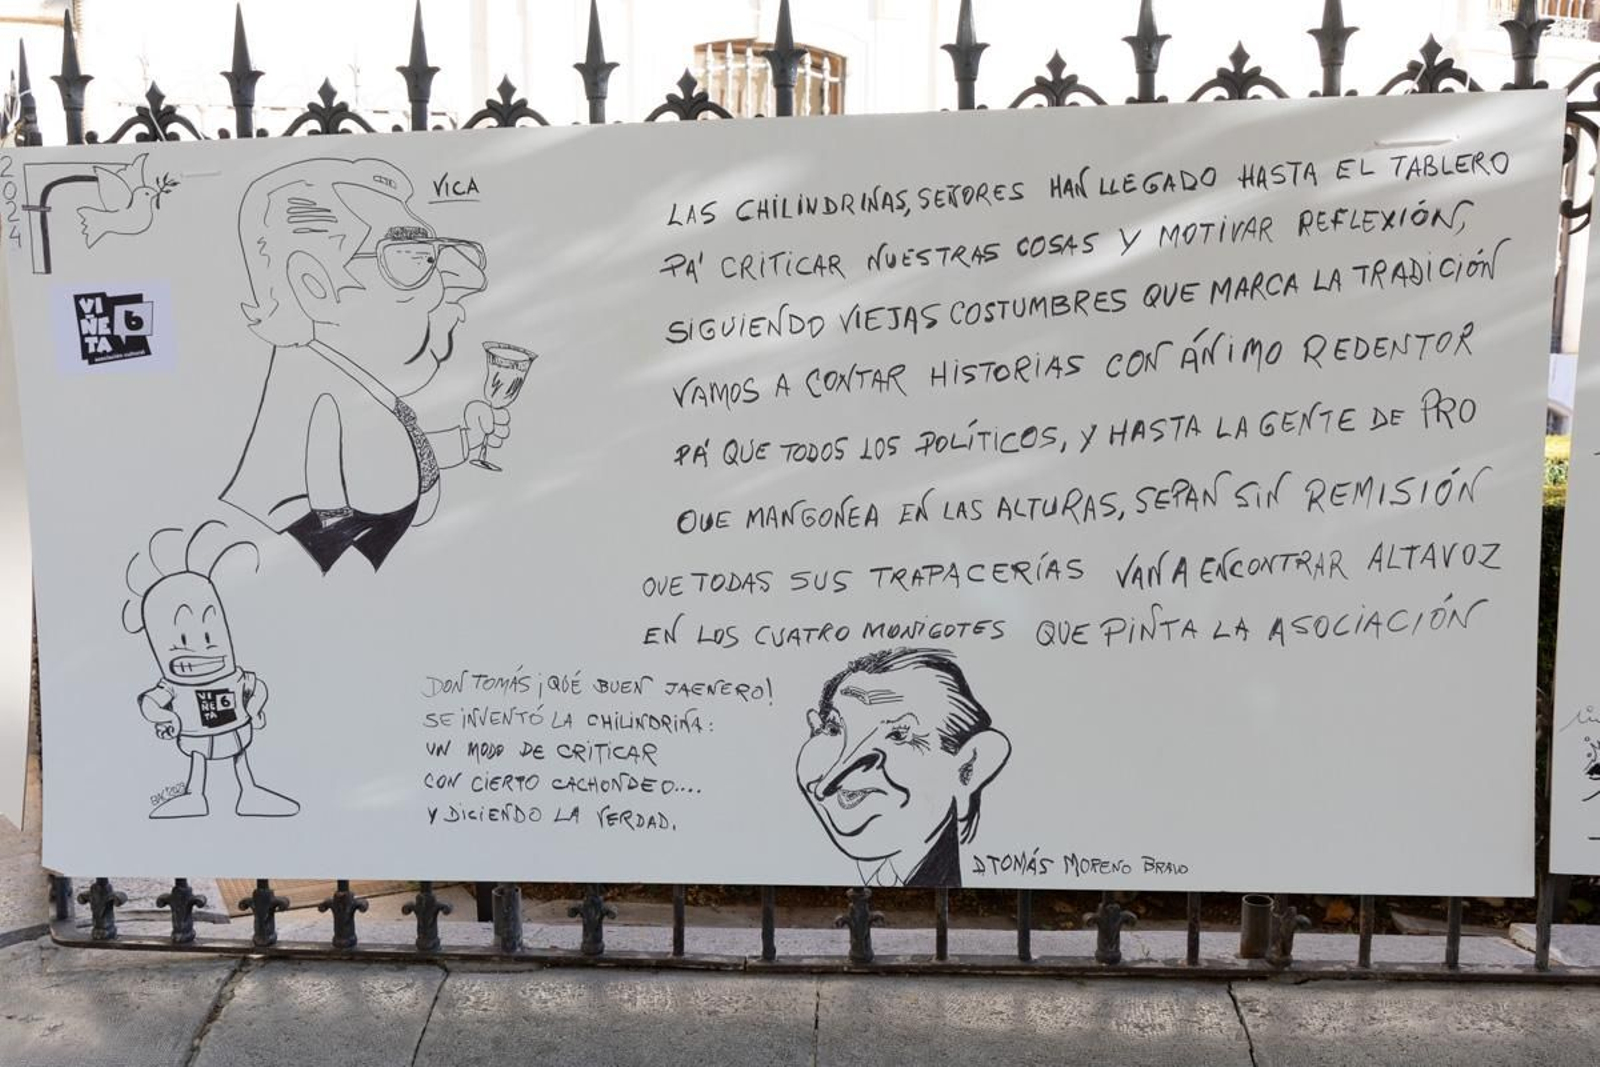 2024
VICA
VI
ÑE
TA
6
asociación cultural
LAS CHILINDRINAS, SEÑORES HAN LLEGADO HASTA EL TABLERO
PA' CRITICAR NUESTRAS COSAS Y MOTIVAR REFLEXIÓN,
SIGUIENDO VIEJAS COSTUMBRES QUE MARCA LA TRADICIÓN
VAMOS A CONTAR HISTORIAS CON ÁNIMO REDENTOR
PA' QUE TODOS LOS POLÍTICOS, Y HASTA LA GENTE DE PRO
QUE MANGONEA EN LAS ALTURAS, SEPAN SIN REMISIÓN
QUE TODAS SUS TRAPACERÍAS VAN A ENCONTRAR ALTAVOZ
EN LOS CUATRO MONIGOTES QUE PINTA LA ASOCIACIÓN
DON TOMÁS ¡QUÉ BUEN JAENERO!
SE INVENTÓ LA CHILINDRINA:
UN MODO DE CRITICAR
CON CIERTO CACHONDEO....
Y DICIENDO LA VERDAD.
VI
ÑE
TA
6
D TOMÁS MORENO BRAVO